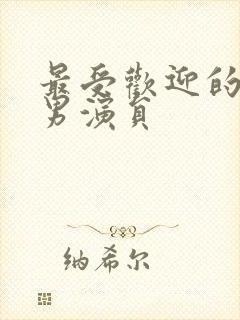 最受歡迎的
男演員
纳希尔